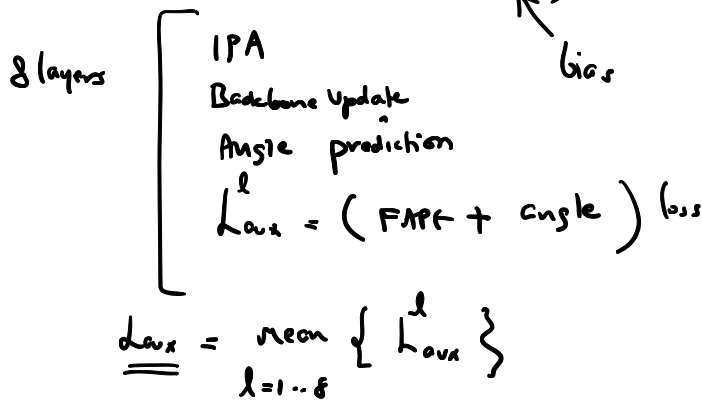 bias
8 layers
IPA
Backbone Update
Angle prediction
L^l_aux = (FAPE + angle) loss
L_aux = mean { L^l_aux }
l=1..8